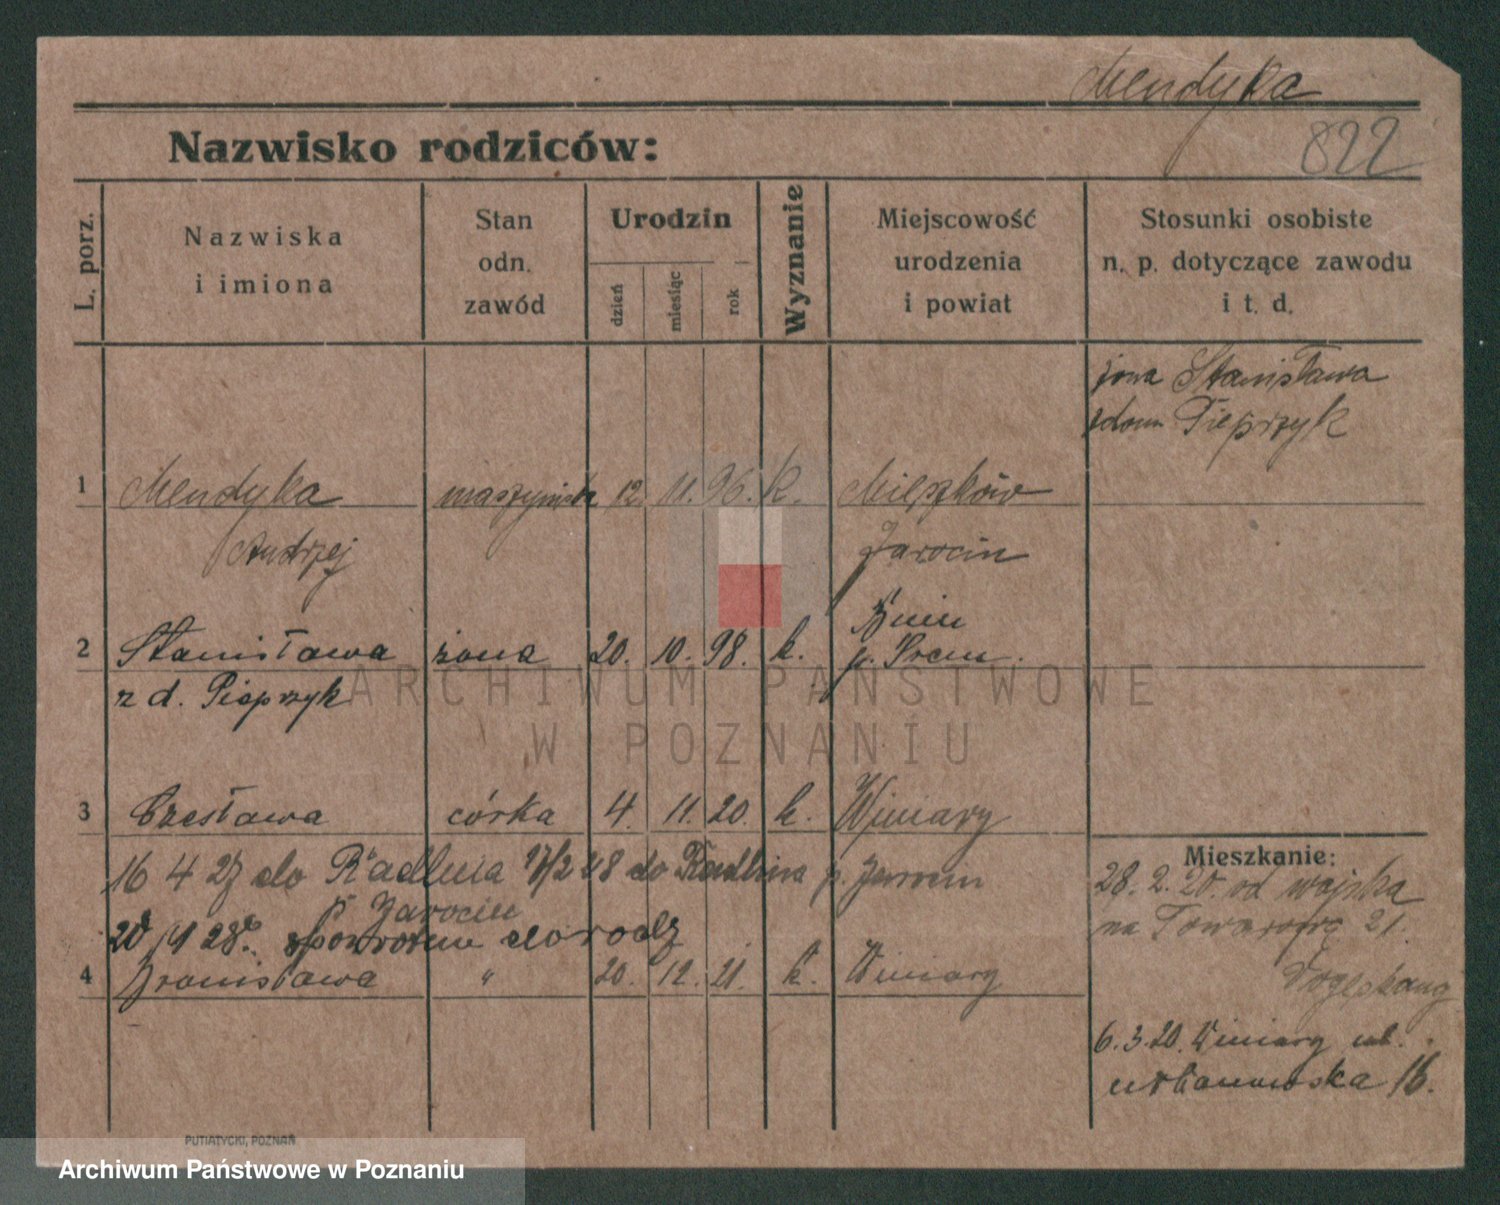 Mendyka
822
Nazwisko rodziców:
L. porz.
Nazwiska
i imiona
Stan
odn.
zawód
Urodzin
dzień
miesiąc
rok
Wyznanie
Miejscowość
urodzenia
i powiat
Stosunki osobiste
n. p. dotyczące zawodu
i t. d.
żona Stanisława
z domu Pieprzyk
1 Mendyka maszynista 12. 11. 96. k. Mieszków
Andrzej Jarocin
Bnin
2 Stanisława żona 20. 10. 98. k. p. Śrem.
z d. Pieprzyk
3 Czesława córka 4. 11. 20. k. Winiary
16 4 27 do Radlina 17/2 28 do Radlina p. Jarocin
p. Jarocin
28. z powrotem do rodz
4 Bronisława " 20. 12. 21. k. Winiary
Mieszkanie:
28. 2. 20. od wojska
na Towarową 21.
6. 3. 20. Winiary ul.
Urbanowska 16.
PUTIATYCKI, POZNAŃ
ARCHIWUM PAŃSTWOWE
W POZNANIU
Archiwum Państwowe w Poznaniu